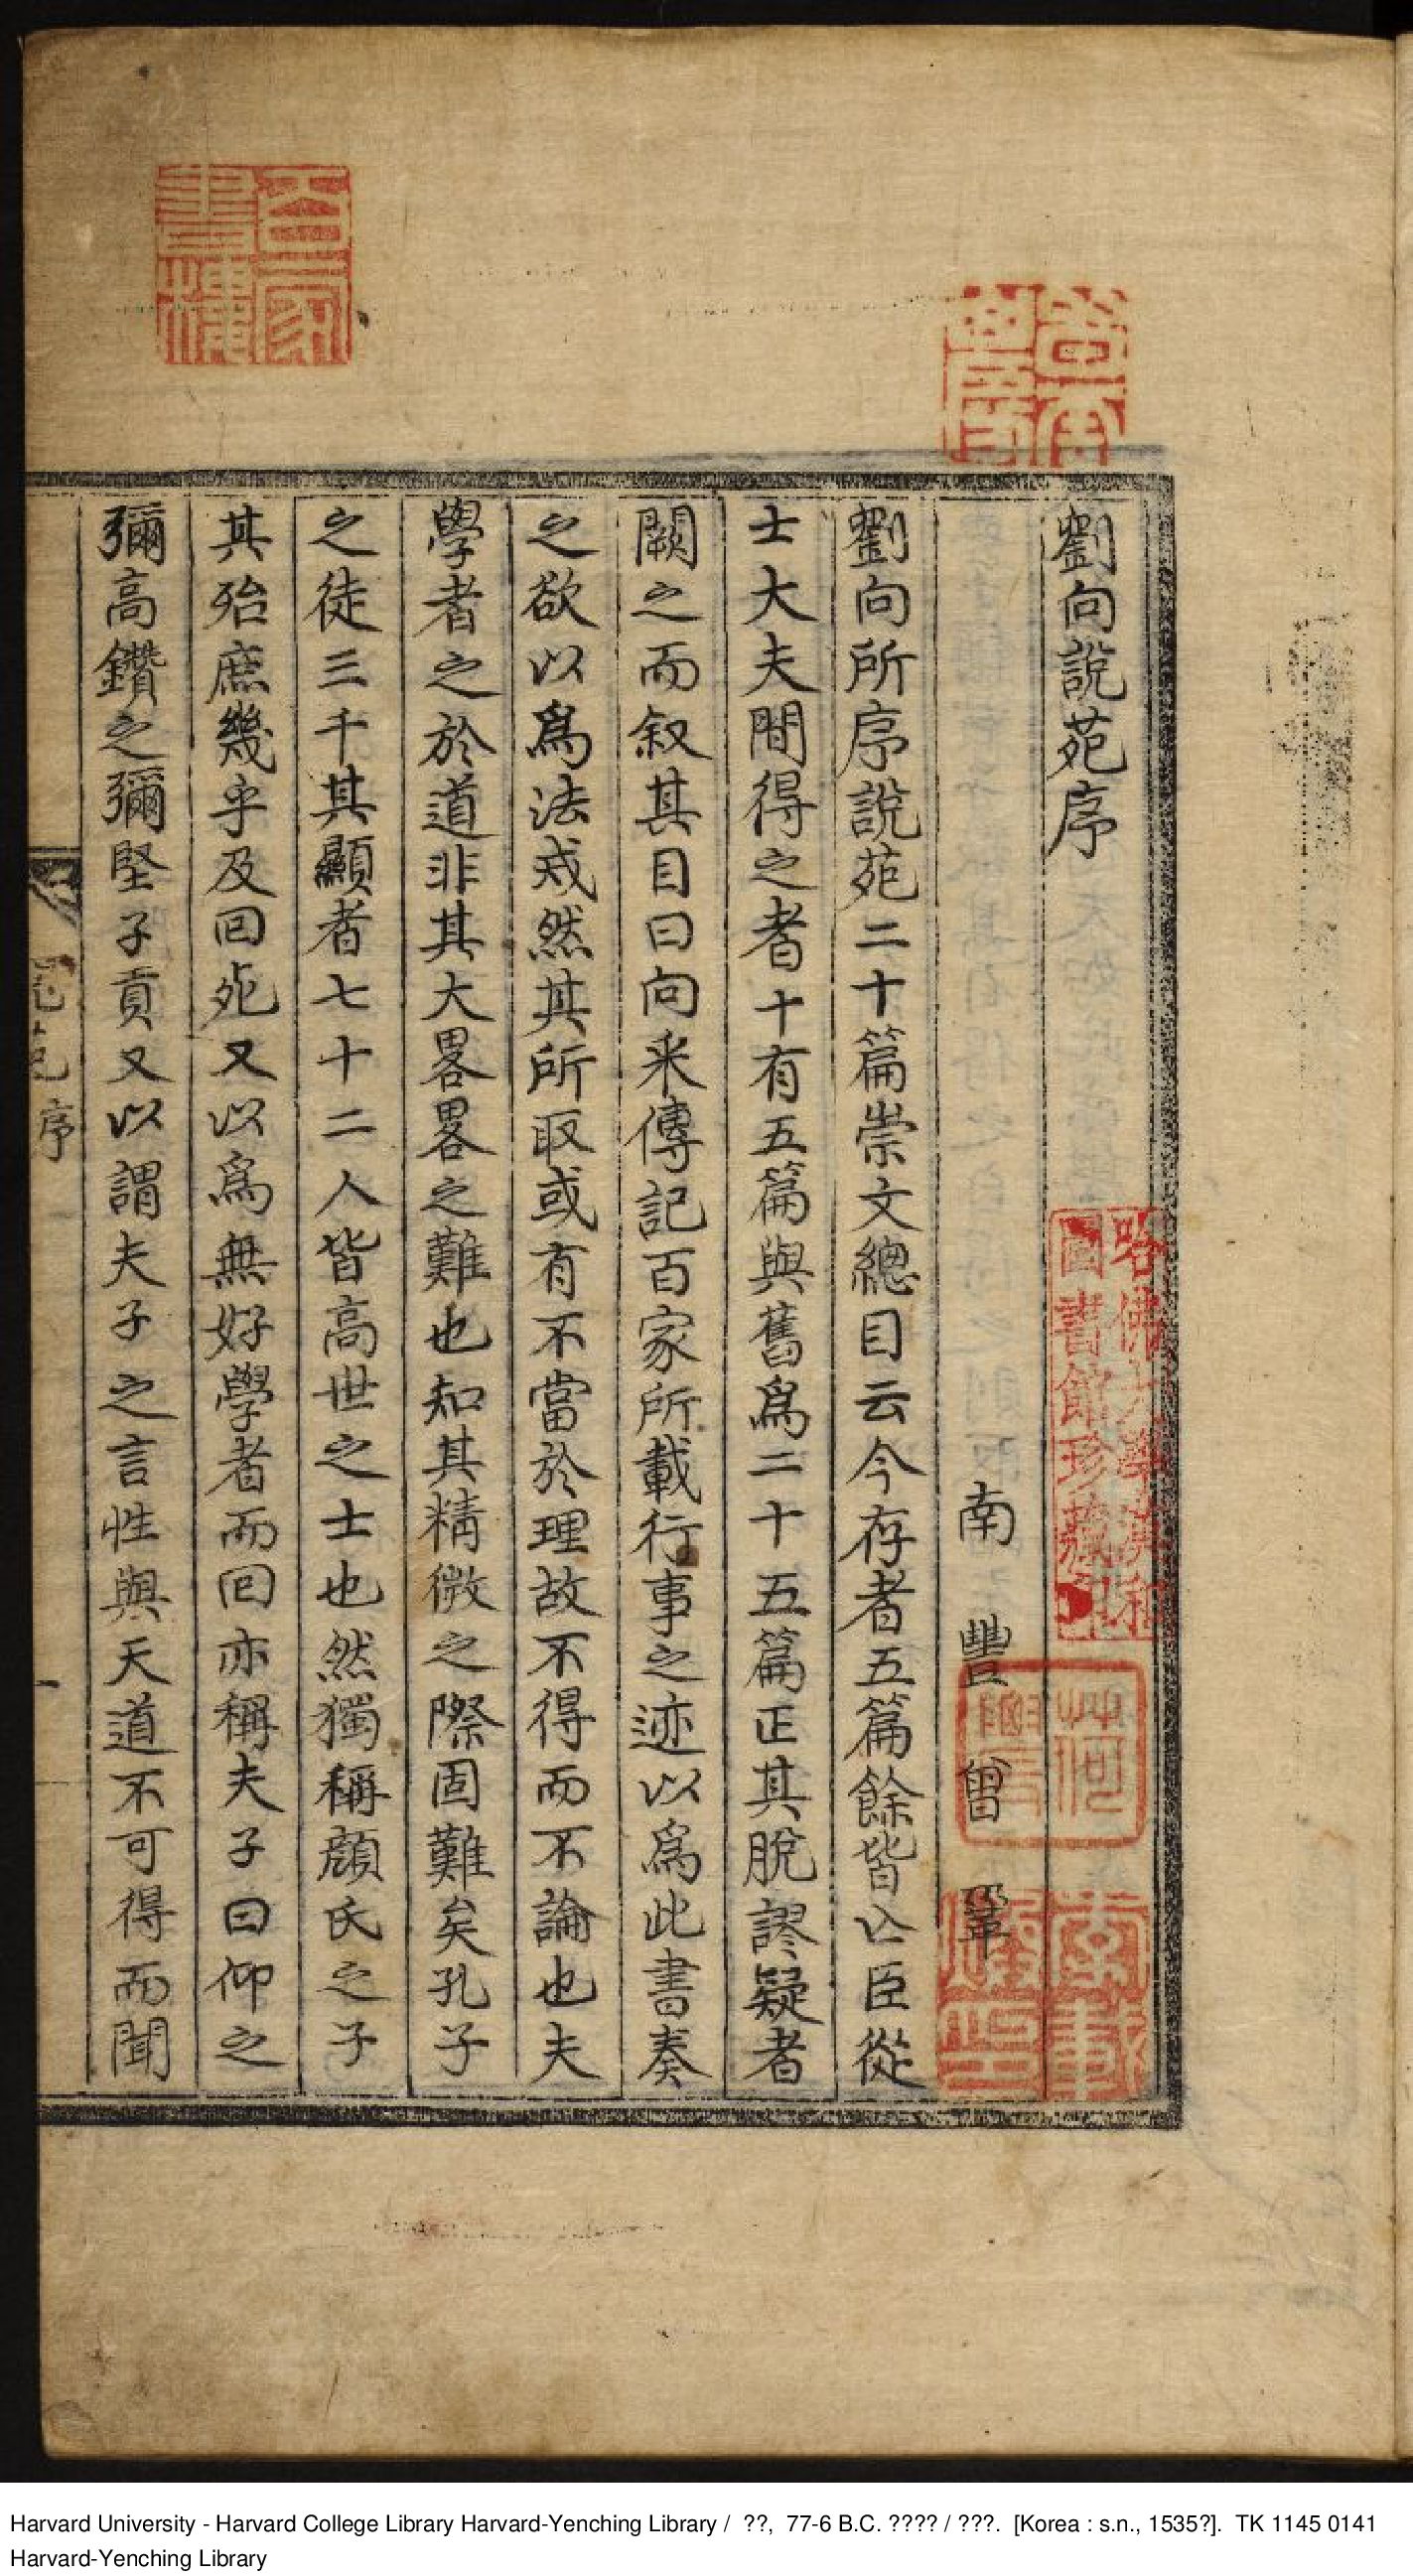 劉向說苑序
南豐曾鞏
劉向所序說苑二十篇崇文總目云今存者五篇餘皆亡臣從
士大夫間得之者十有五篇與舊爲二十五篇正其脫謬疑者
闕之而叙其目曰向采傳記百家所載行事之迹以爲此書奏
之欲以爲法戒然其所取或有不當於理故不得而不論也夫
學者之於道非其大畧畧之難也知其精微之際固難矣孔子
之徒三千其顯者七十二人皆高世之士也然獨稱顔氏之子
其殆庶幾乎及回死又以爲無好學者而回亦稱夫子曰仰之
彌高鑽之彌堅子貢又以謂夫子之言性與天道不可得而聞
序
哈佛大學漢和
圖書館珍藏印
Harvard University - Harvard College Library Harvard-Yenching Library / ??, 77-6 B.C. ???? / ???. [Korea : s.n., 1535?]. TK 1145 0141
Harvard-Yenching Library